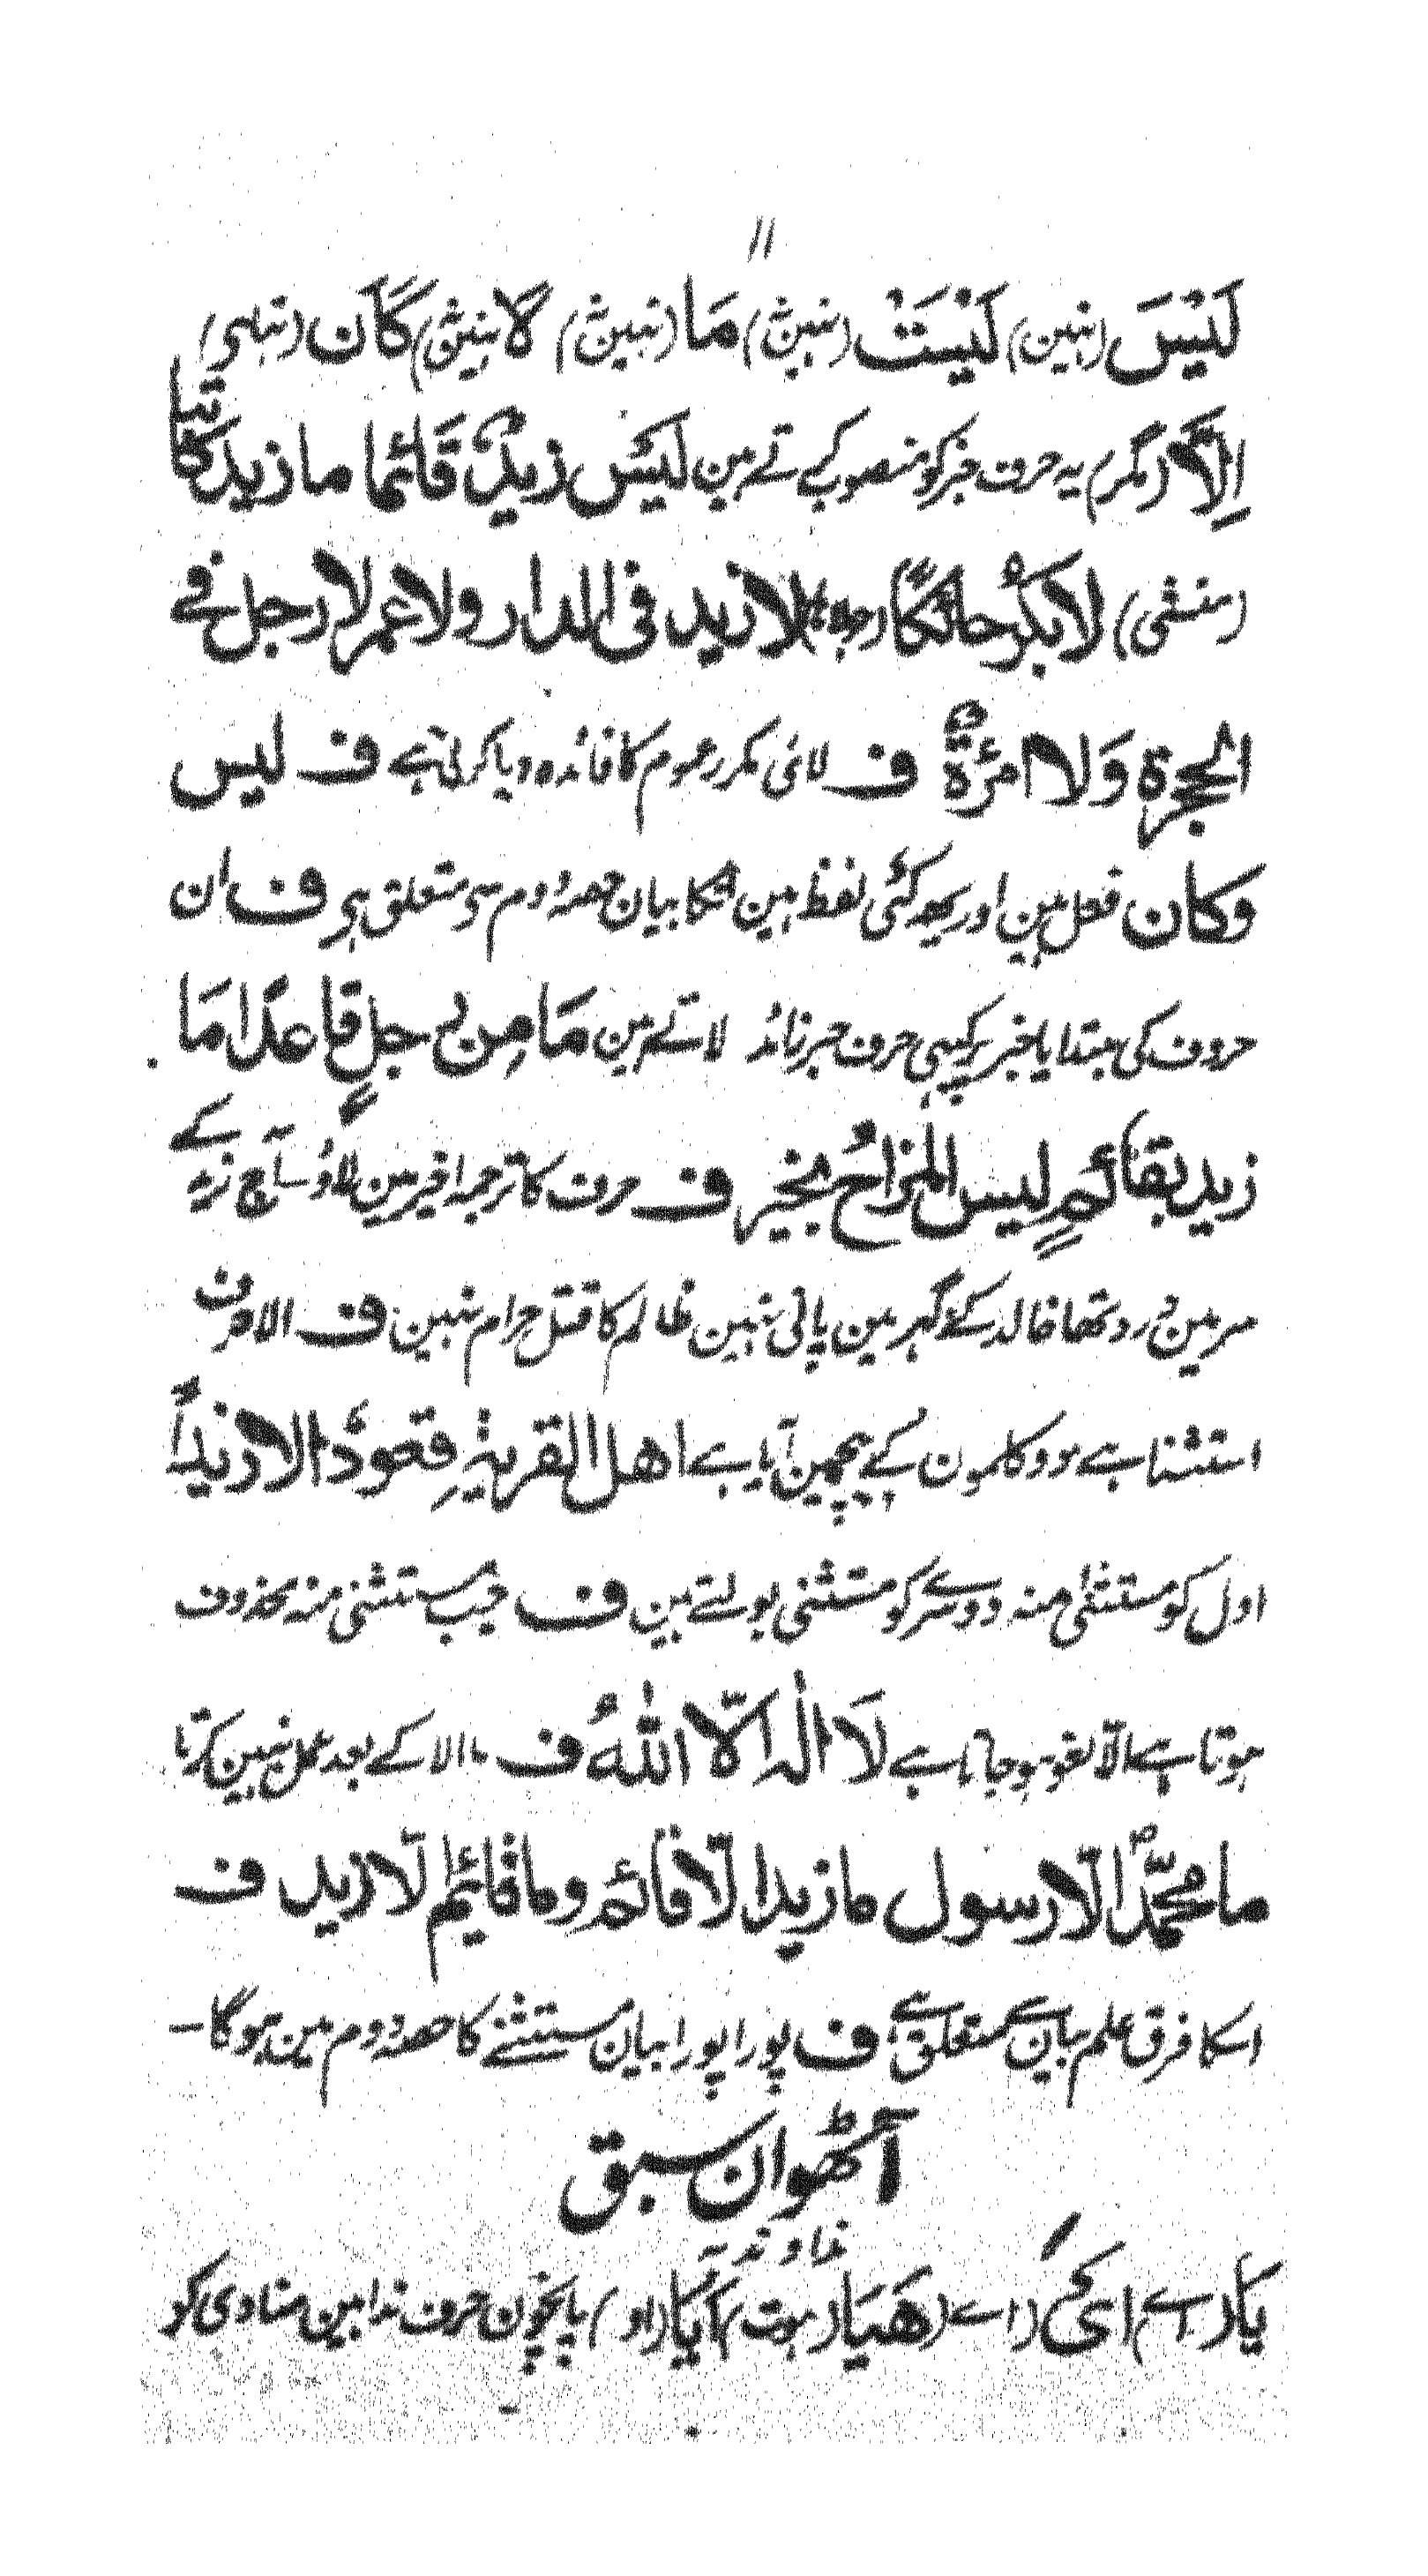 ۱۱
لَیْسَ (نہین) لَیْسَتْ (نہین) مَا (نہین) لا (نہین) کَانَ (تہا ہی)
اِلَّا (مگر) یہ حرف خبر کو منصوب کرتے ہین لَیْسَ زیدٌ قَائما ما زید کاتبا
(منشی) لا بکرٌ حائکًا (جولاہا) لا زید فی الدار ولا عمر لا رجل فے
الحجرة وَلا امرُءةٌ ف لائی مکرر عموم کا فائدہ دیا کرتی ہے ف لیس
وکان فعل ہین اور بھی کئی لفظ ہین انکا بیان حصہ دوم سی متعلق ہی ف ان
حروف کی مبتدا یا خبر پر کبہی حرف جر زائد لاتے ہین مَا مِن رجلٍ قاعدًا مَا
زید بقائمٍ لیس المزاحُ بخیر ف حرف کا ترجمہ اخیر مین لاؤ سا آج زید کے
سر مین درد تھا خالد کے گہر مین پانی نہین ظالم کا قتل حرام نہین ف الا حرف
استثنا ہے دو کلمون کے بیچ مین آیا ہے اهل القریۃِ قعودٌ الا زیداً
اول کو مستثنیٰ منہ دوسرے کو مستثنی بولتے ہین ف جب مستثنی منہ محذوف
ہوتا ہے الّا لغو ہو جاتا ہے لَا الٰہ الّا اللّٰهُ ف ما الا کے بعد عمل نہین کرتا
ما محمّدٌ الّا رسول ما زید الّا قائم وما قائم الّا زید ف
اسکا فرق علم بیان سے متعلق ہے ف پورا پورا بیان مستثنے کا حصہ دوم مین ہوگا –
آٹھوان سبق
یَا (اے) اَیْ (اے) هَیَا (بہت) اَیَا (او) پانچون حرف ندا ہین منادی کو